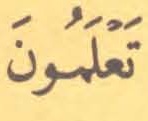 تَعْلَمُونَ